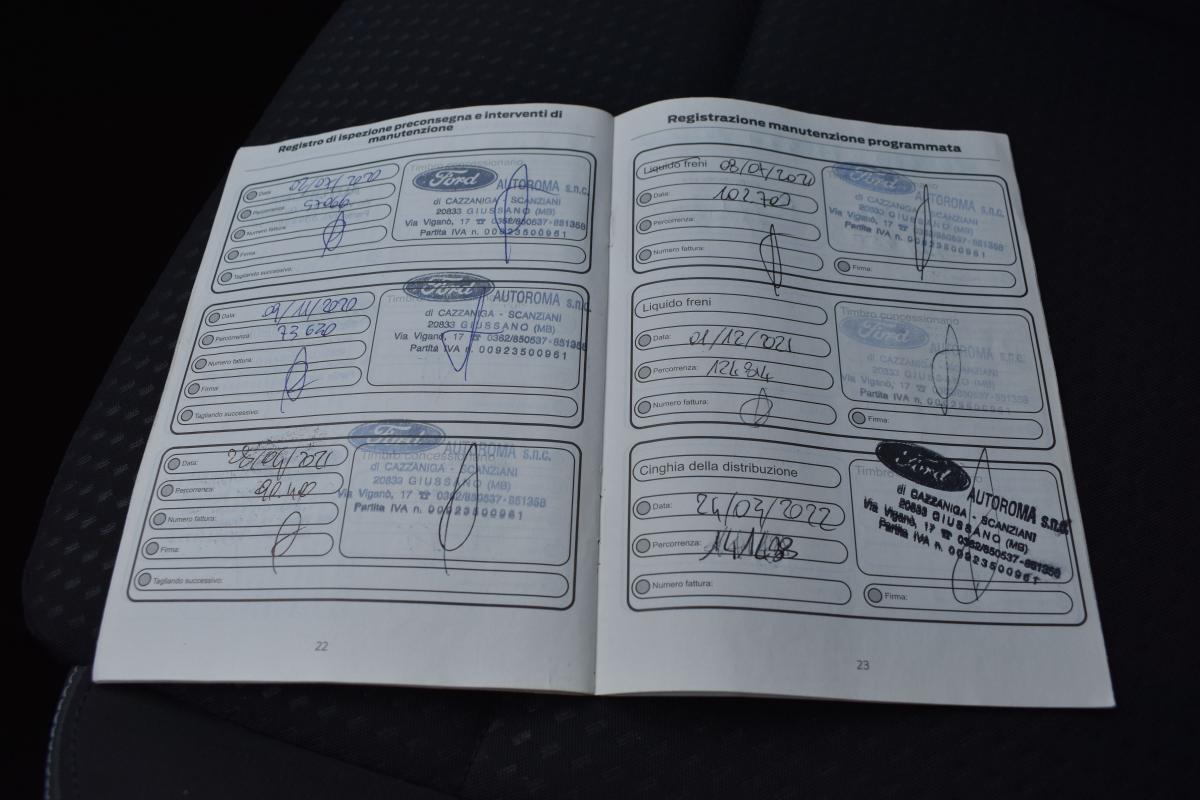 Registro di ispezione preconsegna e interventi di
manutenzione
Timbro concessionario
Data:
Percorrenza:
Numero fattura:
Firma:
Tagliando successivo:
Ford
AUTOROMA s.n.c.
di CAZZANIGA - SCANZIANI
20833 GIUSSANO (MB)
Via Viganò, 17 ☎ 0362/850537-851358
Partita IVA n. 00923500961
Data: 09/11/2020
Percorrenza: 73620
Numero fattura:
Firma:
Tagliando successivo:
Ford
AUTOROMA s.n.c.
di CAZZANIGA - SCANZIANI
20833 GIUSSANO (MB)
Via Viganò, 17 ☎ 0362/850537-851358
Partita IVA n. 00923500961
Data:
Percorrenza:
Numero fattura:
Firma:
Tagliando successivo:
Ford
Timbro concessionario
AUTOROMA s.n.c.
di CAZZANIGA - SCANZIANI
20833 GIUSSANO (MB)
Via Viganò, 17 ☎ 0362/850537-851358
Partita IVA n. 00923500961
22
Registrazione manutenzione programmata
Liquido freni
Data:
Percorrenza:
Numero fattura:
Ford
AUTOROMA s.n.c.
di CAZZANIGA - SCANZIANI
20833 GIUSSANO (MB)
Via Viganò, 17 ☎ 0362/850537-851358
Partita IVA n. 00923500961
Firma:
Liquido freni
Data: 01/12/2021
Percorrenza: 124814
Numero fattura:
Timbro concessionario
Ford
AUTOROMA s.n.c.
di CAZZANIGA - SCANZIANI
20833 GIUSSANO (MB)
Via Viganò, 17 ☎ 0362/850537-851358
Partita IVA n. 00923500961
Firma:
Cinghia della distribuzione
Data: 24/03/2022
Percorrenza:
Numero fattura:
Timbro
Ford
AUTOROMA s.n.c.
di CAZZANIGA - SCANZIANI
20833 GIUSSANO (MB)
Via Viganò, 17 ☎ 0362/850537-851358
Partita IVA n. 00923500961
Firma:
23